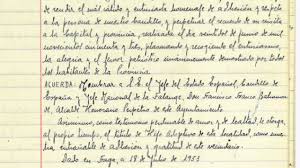 de rendir el más cálido y entusiasta homenaje de adhesión y respeto
a la persona de nuestro Caudillo, y perpetuar el recuerdo de su visita
a la Capital y provincia, realizada el día veintidos de junio de mil
novecientos cincuenta y tres, plasmando y recogiendo el entusiasmo,
la alegría y el fervor patriótico unánimemente demostrado por todos
los habitantes de la Provincia
ACUERDA: Nombrar a S.E. el Jefe del Estado Español, Caudillo de
España y Jefe Nacional de la Falange, Don Francisco Franco Bahamon
de, Alcalde Honorario Perpetuo de este Ayuntamiento
Asimismo, como testimonio perdurable de amor y de lealtad le otorga,
al propio tiempo, el título de Hijo Adoptivo de esta localidad, como una
entrañable de adhesión y gratitud de este vecindario.
Dado en a 18 de Julio de 1953